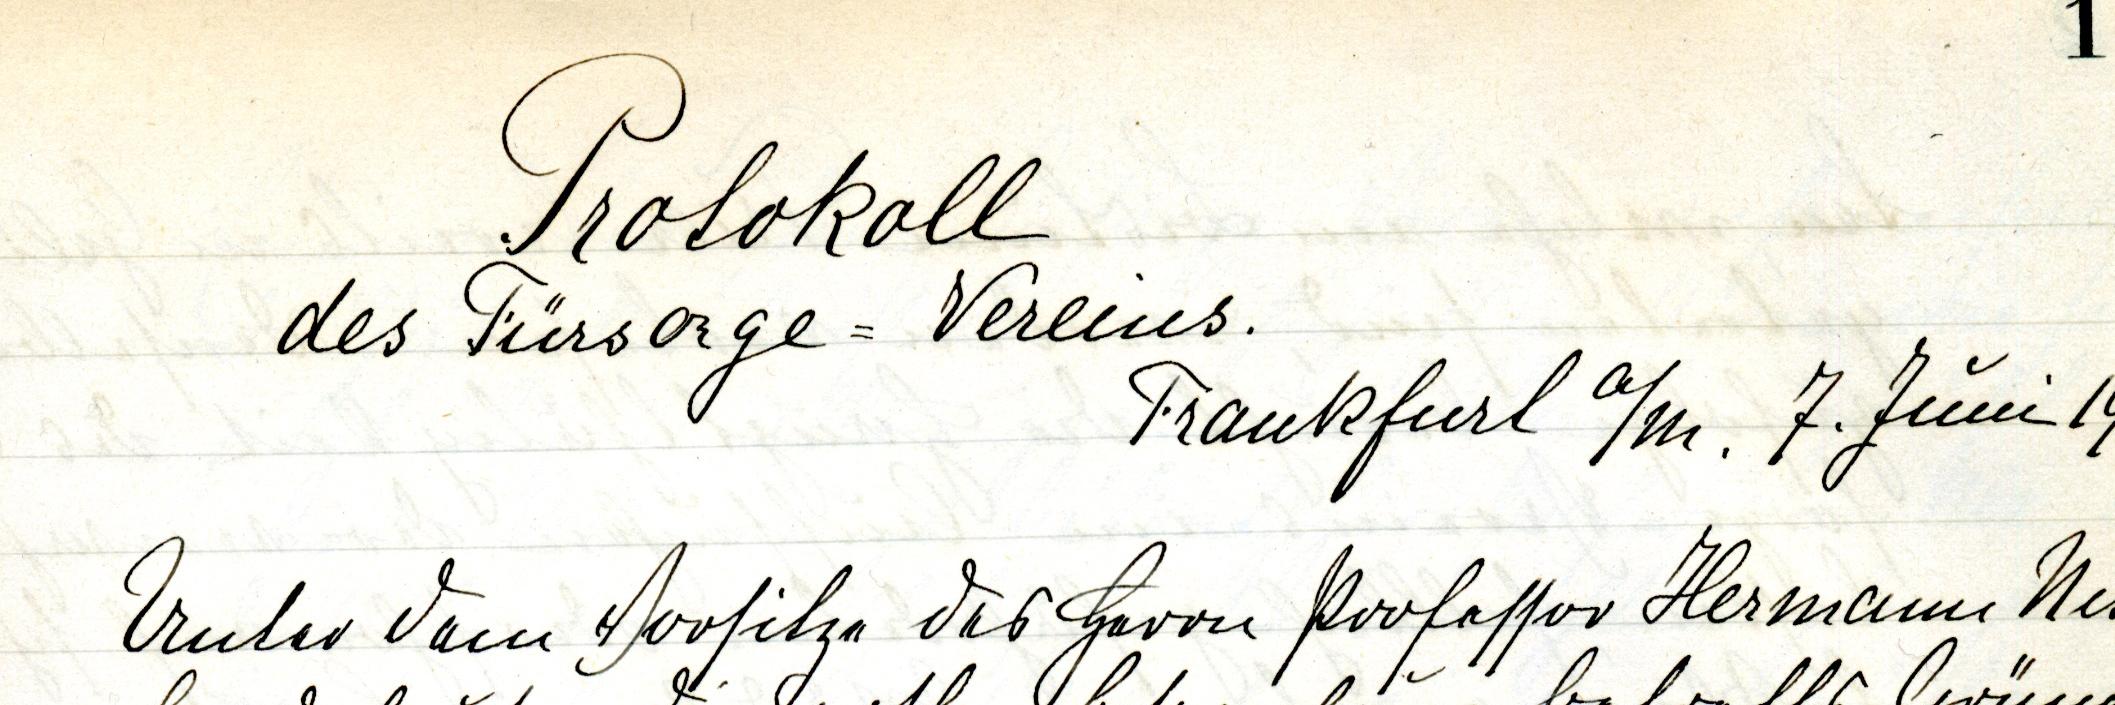 1
Protokoll
des Fürsorge = Vereins.
Frankfurt a/M. 7. Juni 19
Unter dem Vorsitze des Herrn Professor Hermann